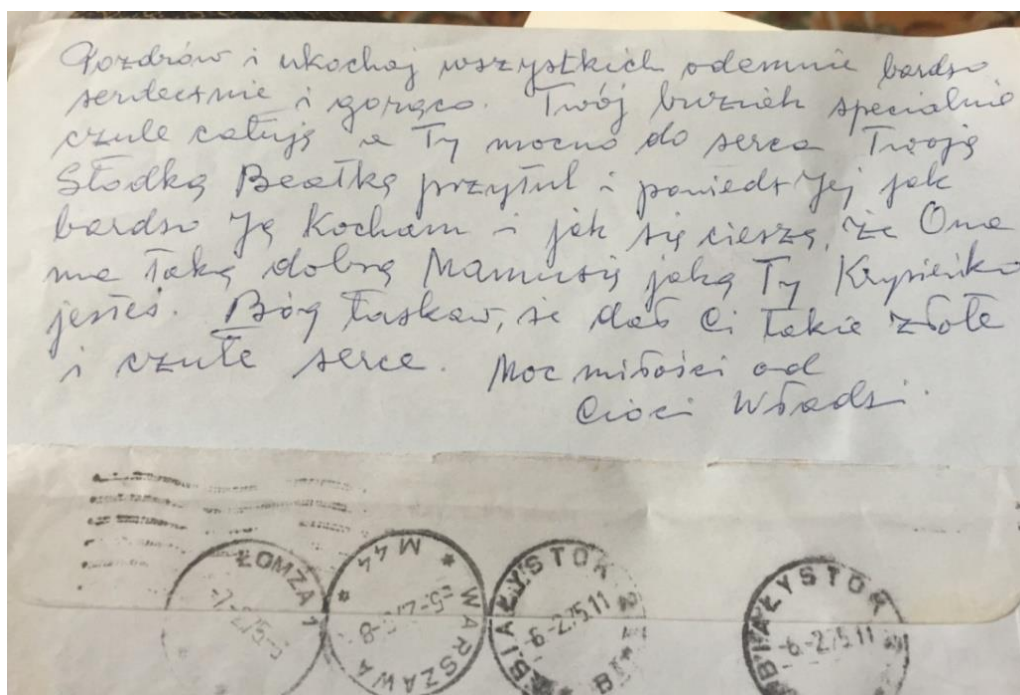 Pozdrów i ukochaj wszystkich odemnie bardzo
serdecznie i gorąco. Twój buziak specialnie
czule całuję a Ty mocno do serca Twoją
Słodką Beatkę przytul i powiedz Jej jak
bardzo Ją Kocham i jak się cieszę, że Ona
ma taką dobrą Mamusię jaką Ty Krysieńko
jesteś. Bóg łaskaw, że dał Ci takie złote
i czułe serce. Moc miłości od
Cioci Władzi.
ŁOMŻA 1
WARSZAWA
M 44
BIAŁYSTOK 2
-6.-2.75.11
B
BIAŁYSTOK 2
-6.-2.75.11